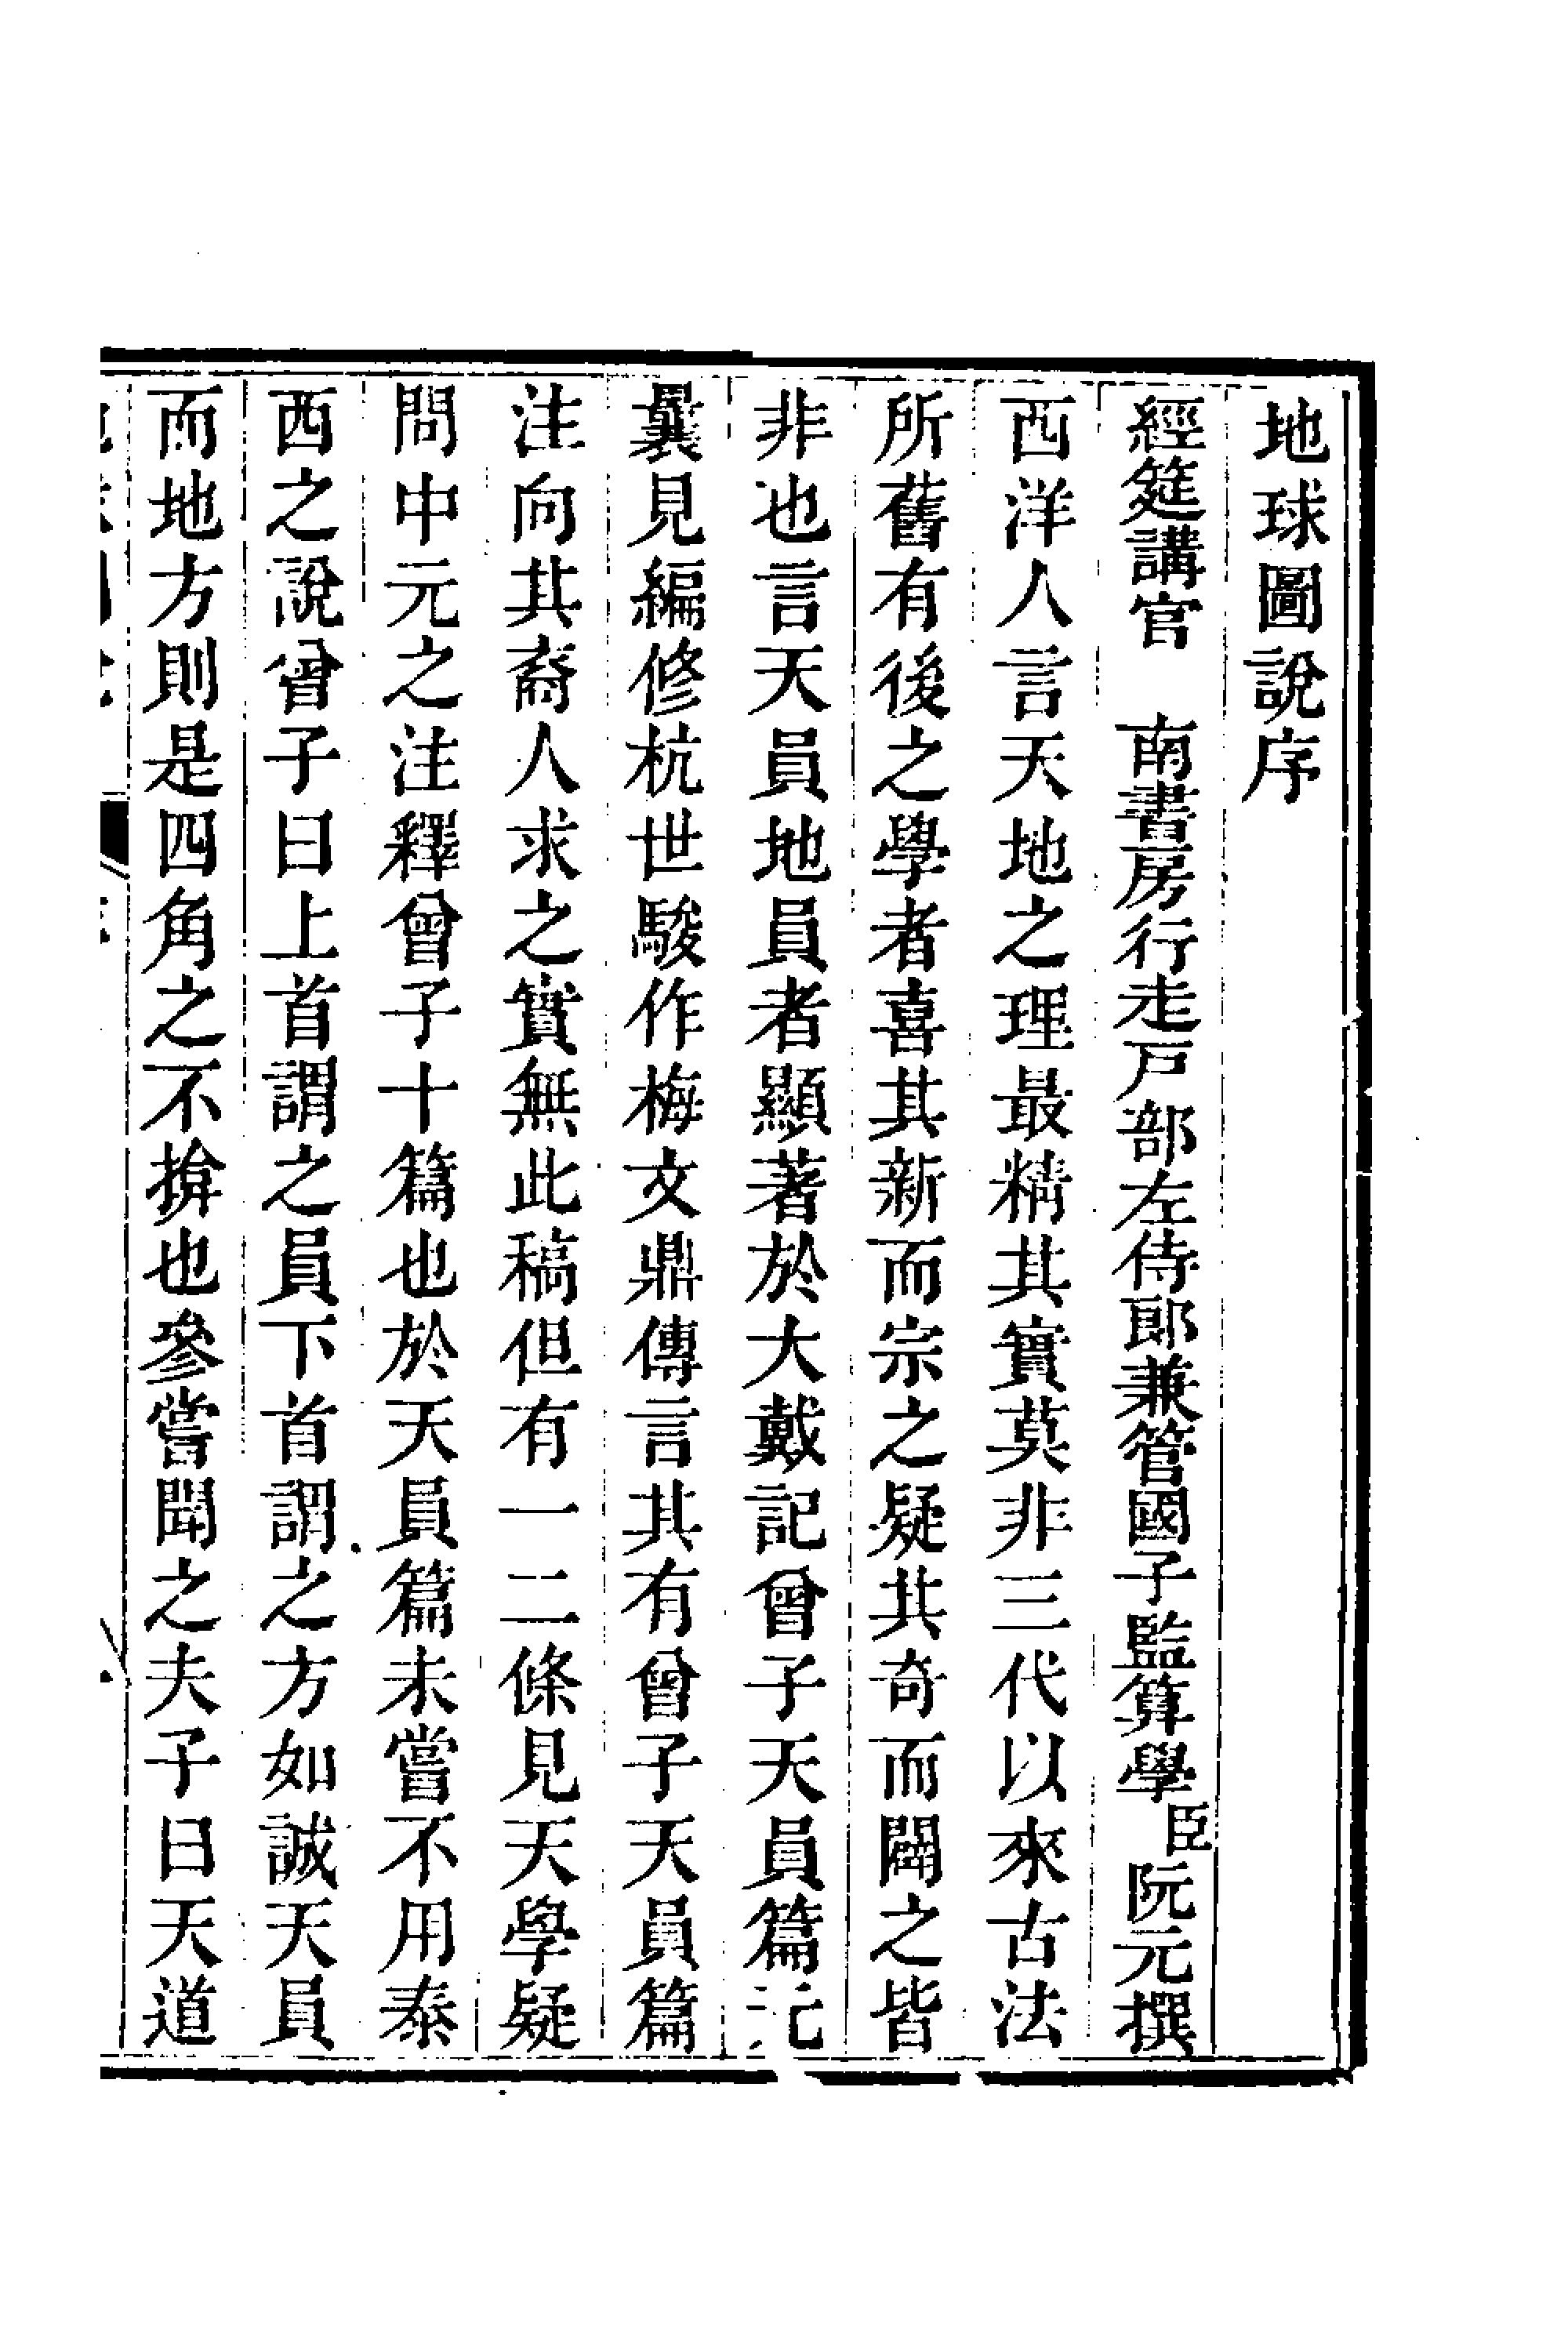 地球圖說序
經筵講官　南書房行走戶部左侍郎兼管國子監算學臣阮元撰
西洋人言天地之理最精其實莫非三代以來古法
所舊有後之學者喜其新而宗之疑其奇而闢之皆
非也言天員地員者顯著於大戴記曾子天員篇元
曩見編修杭世駿作梅文鼎傳言其有曾子天員篇
注向其裔人求之實無此稿但有一二條見天學疑
問中元之注釋曾子十篇也於天員篇未嘗不用泰
西之說曾子曰上首謂之員下首謂之方如誠天員
而地方則是四角之不揜也參嘗聞之夫子曰天道